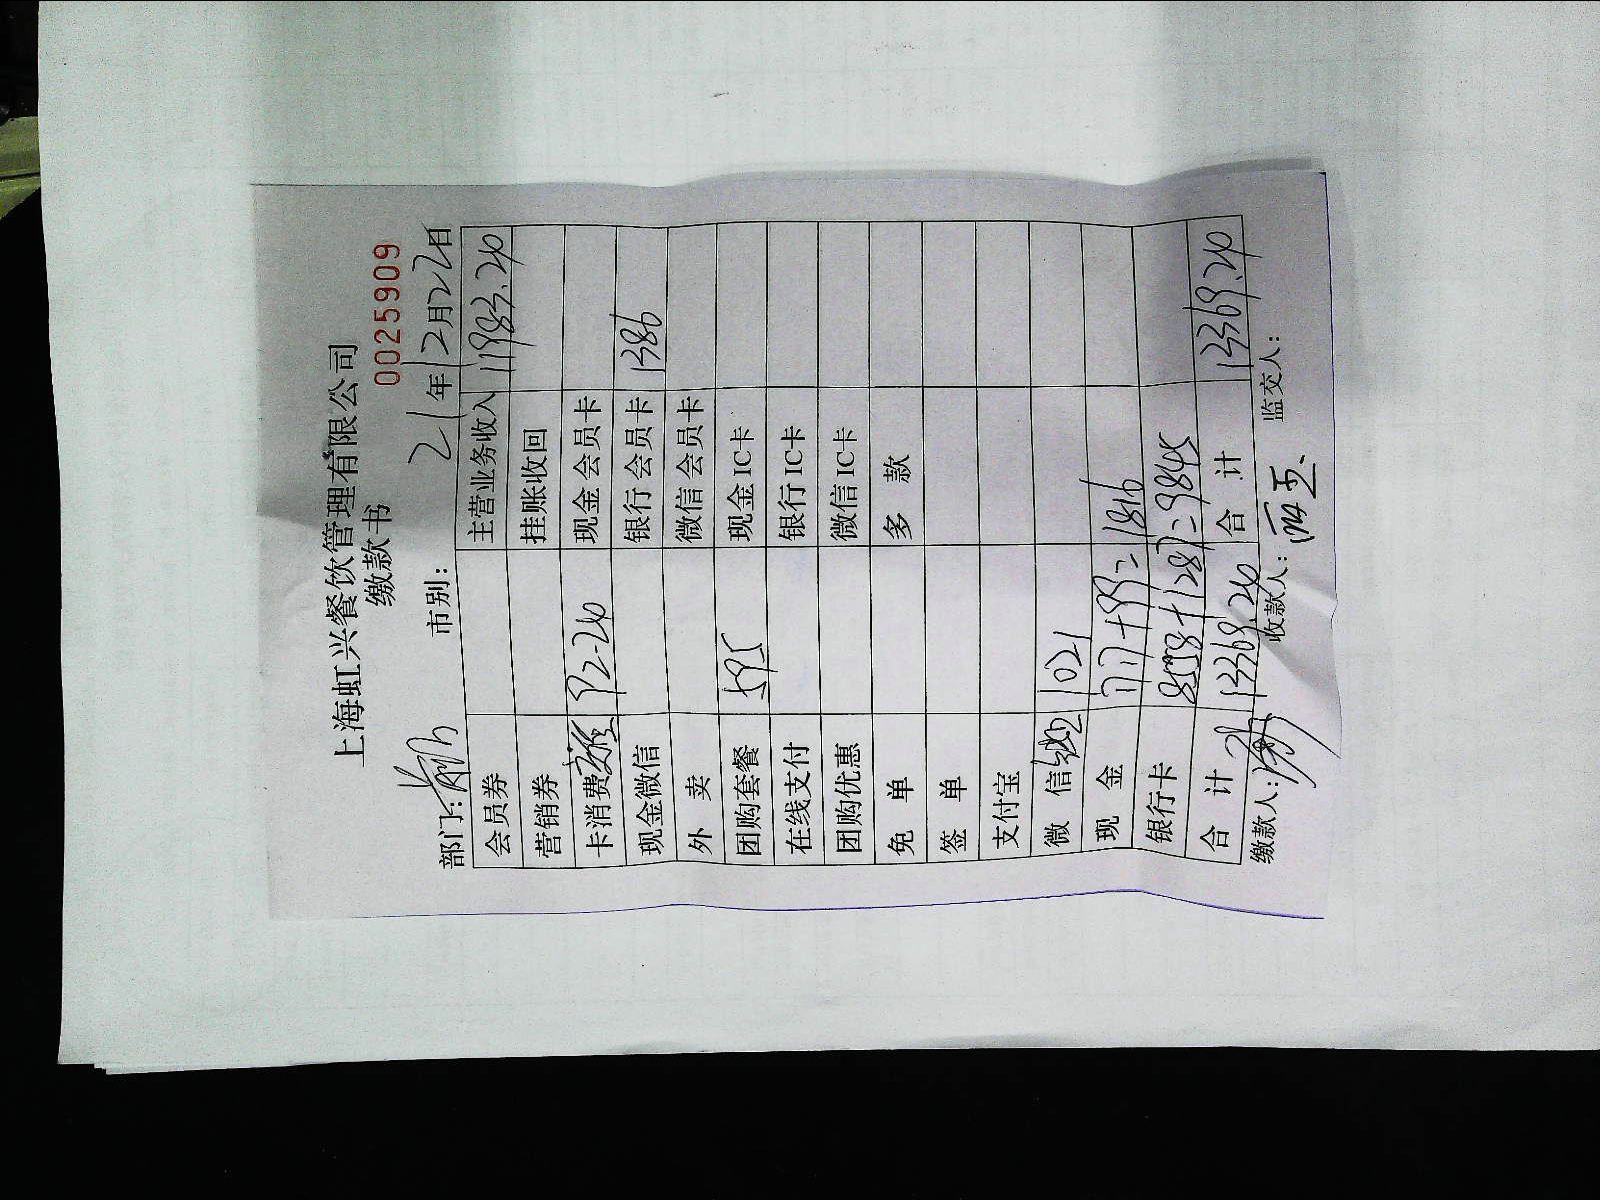 上海虹兴餐饮管理有限公司
缴款书 0025909
部门: 市别: 21年12月22日
会员券 主营业务收入 11983.20
营销券 挂账收回
卡消费 92.20 现金会员卡
现金微信 银行会员卡 1386
外 卖 微信会员卡
团购套餐 595 现金IC卡
在线支付 银行IC卡
团购优惠 微信IC卡
免 单 多 款
签 单
支付宝
微 信 1021
现 金 1717+99=1816
银行卡 8558+1287=9845
合 计 13369.20 合 计 13369.20
缴款人: 收款人: 监交人: